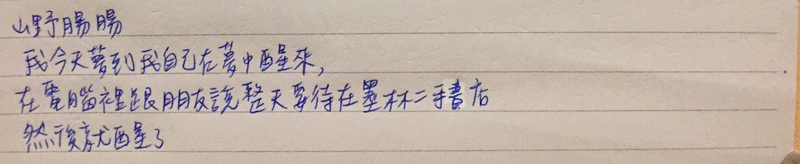 山野腸腸
我今天夢到我自己在夢中醒來,
在電腦裡跟朋友說整天要待在墨林二手書店
然後就醒了